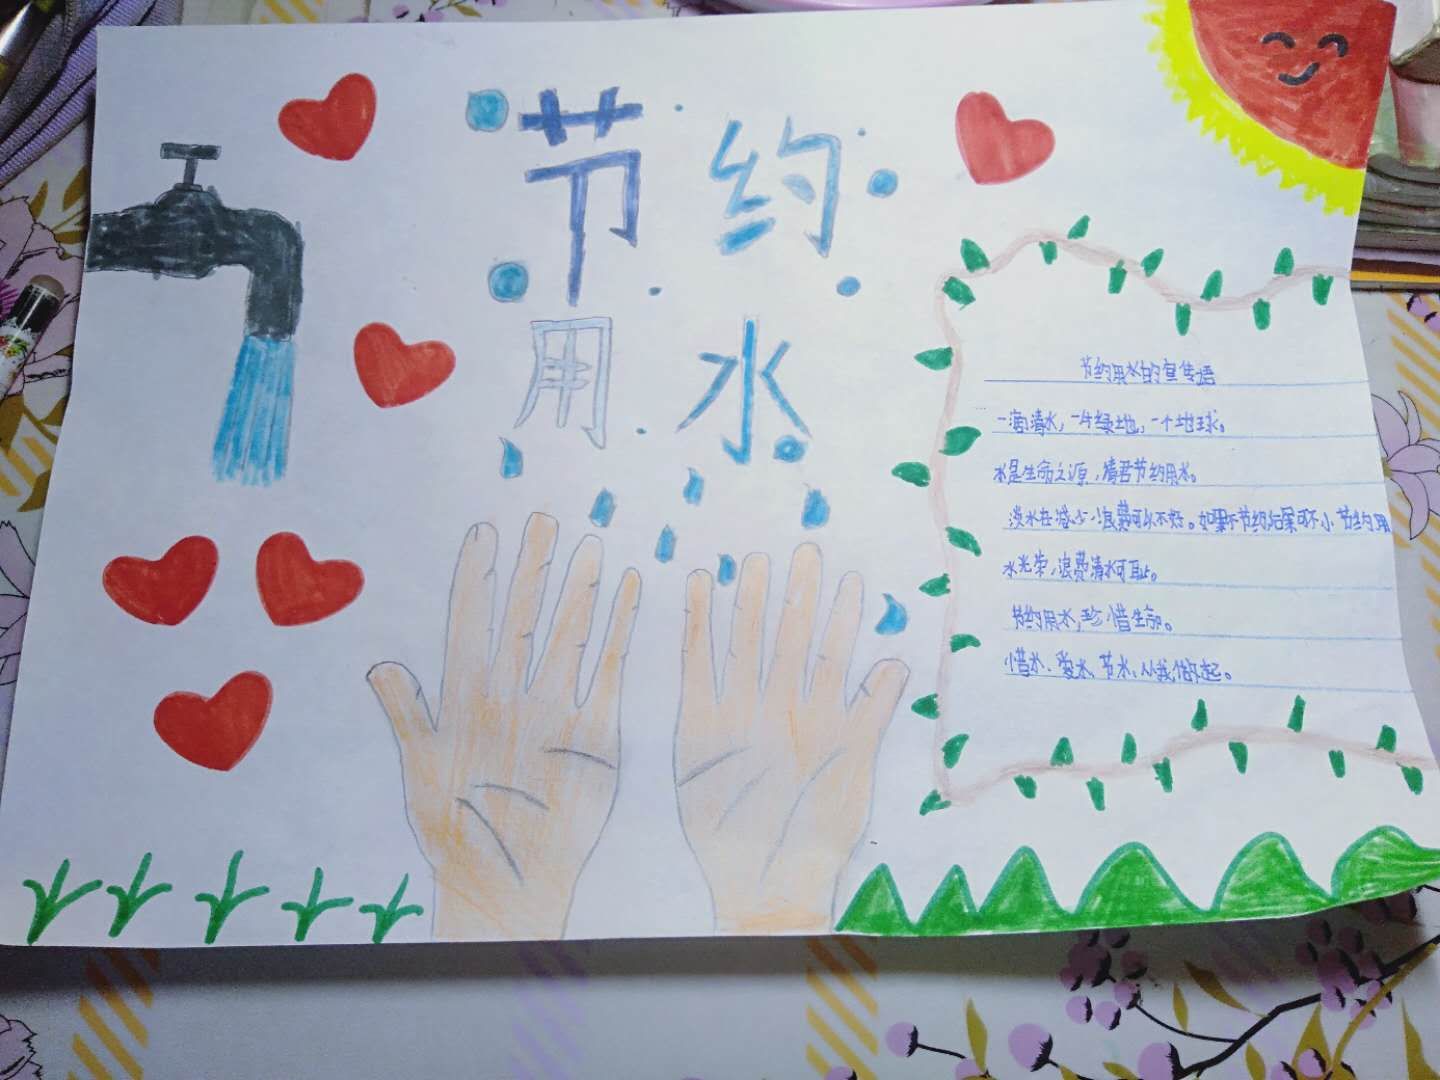 节约
用水
节约用水的宣传语
一滴清水,一片绿地,一个地球。
水是生命之源,请君节约用水。
淡水在减少,浪费可以不好。如果不节约后果可不小 节约用
水光荣,浪费清水可耻。
节约用水,珍惜生命。
惜水、爱水、节水,从我做起。